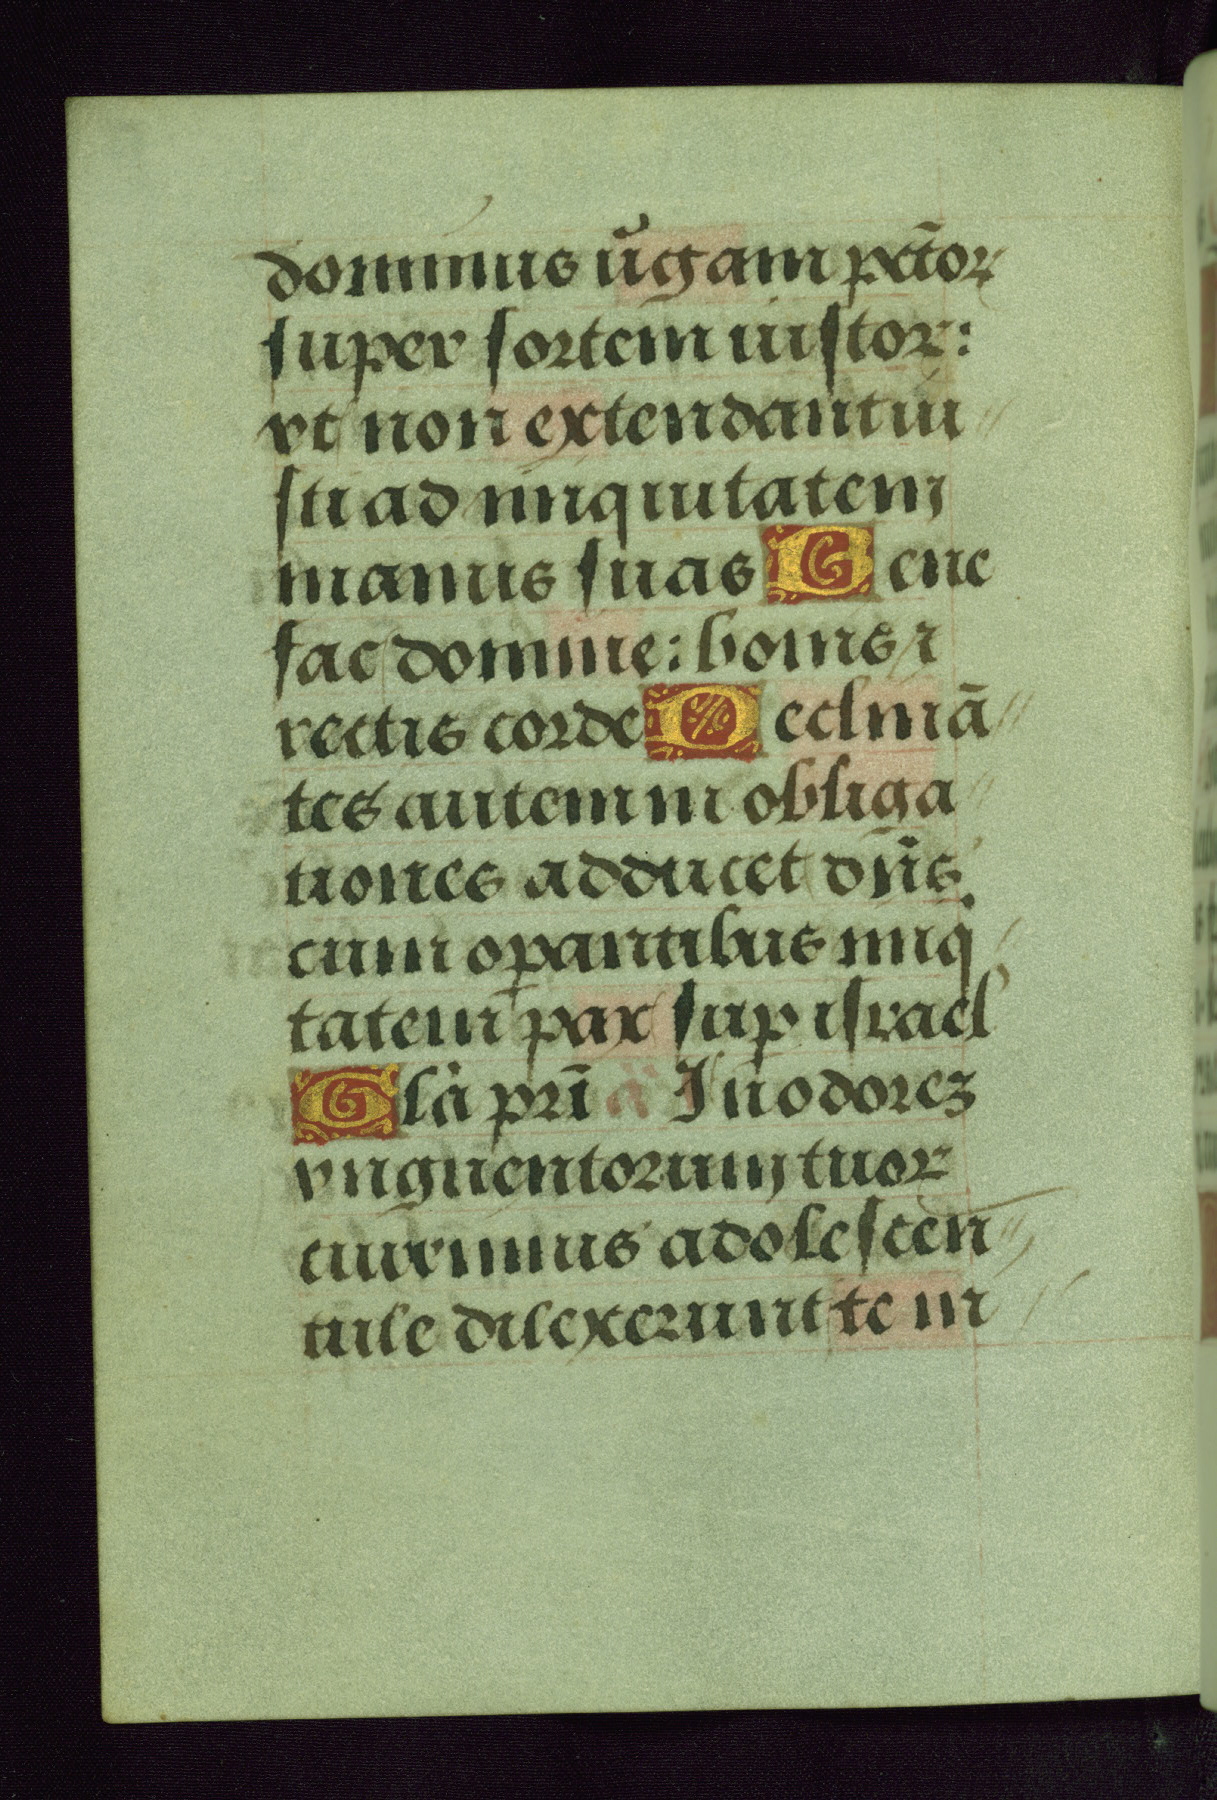 dominus ũgam pctõꝝ
super sortem iustoꝝ:
vt non extendant iu
sti ad iniquitatem
manus suas Bene
fac domine: bonis ⁊
rectis corde Declinã
tes autem in obliga
tiones adducet dñs
cum oꝑantibus iniq̇
tatem pax suꝑ israel
Glã pr̃i In odorez
vnguentorum tuoꝝ
currimus adolescen
tule dilexerunt te ni